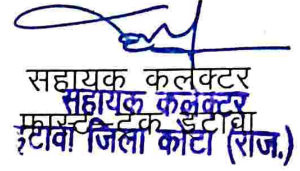 सहायक कलेक्टर
सहायक कलेक्टर
फास्ट ट्रेक इटावा
इटावा जिला कोटा (राज.)